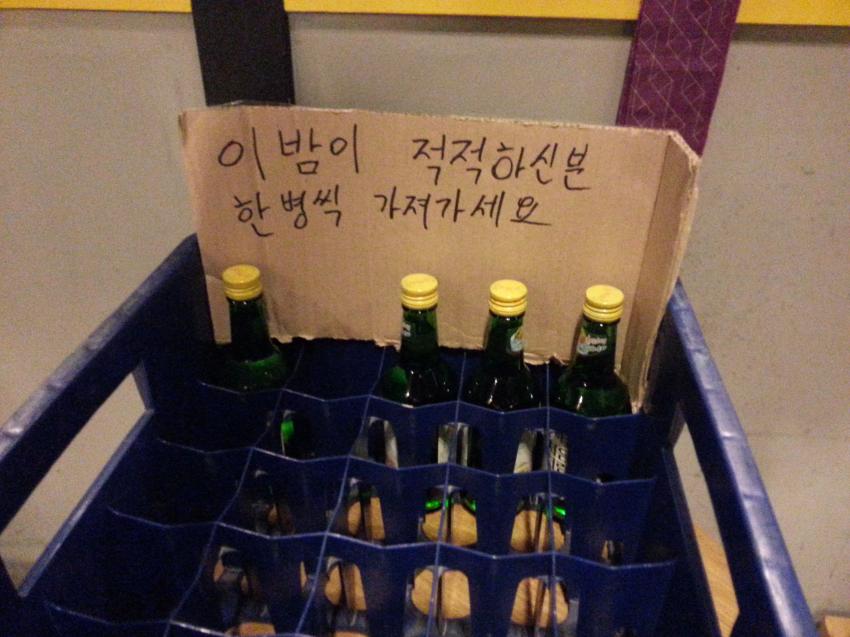 이 밤이 적적하신분
한병씩 가져가세요